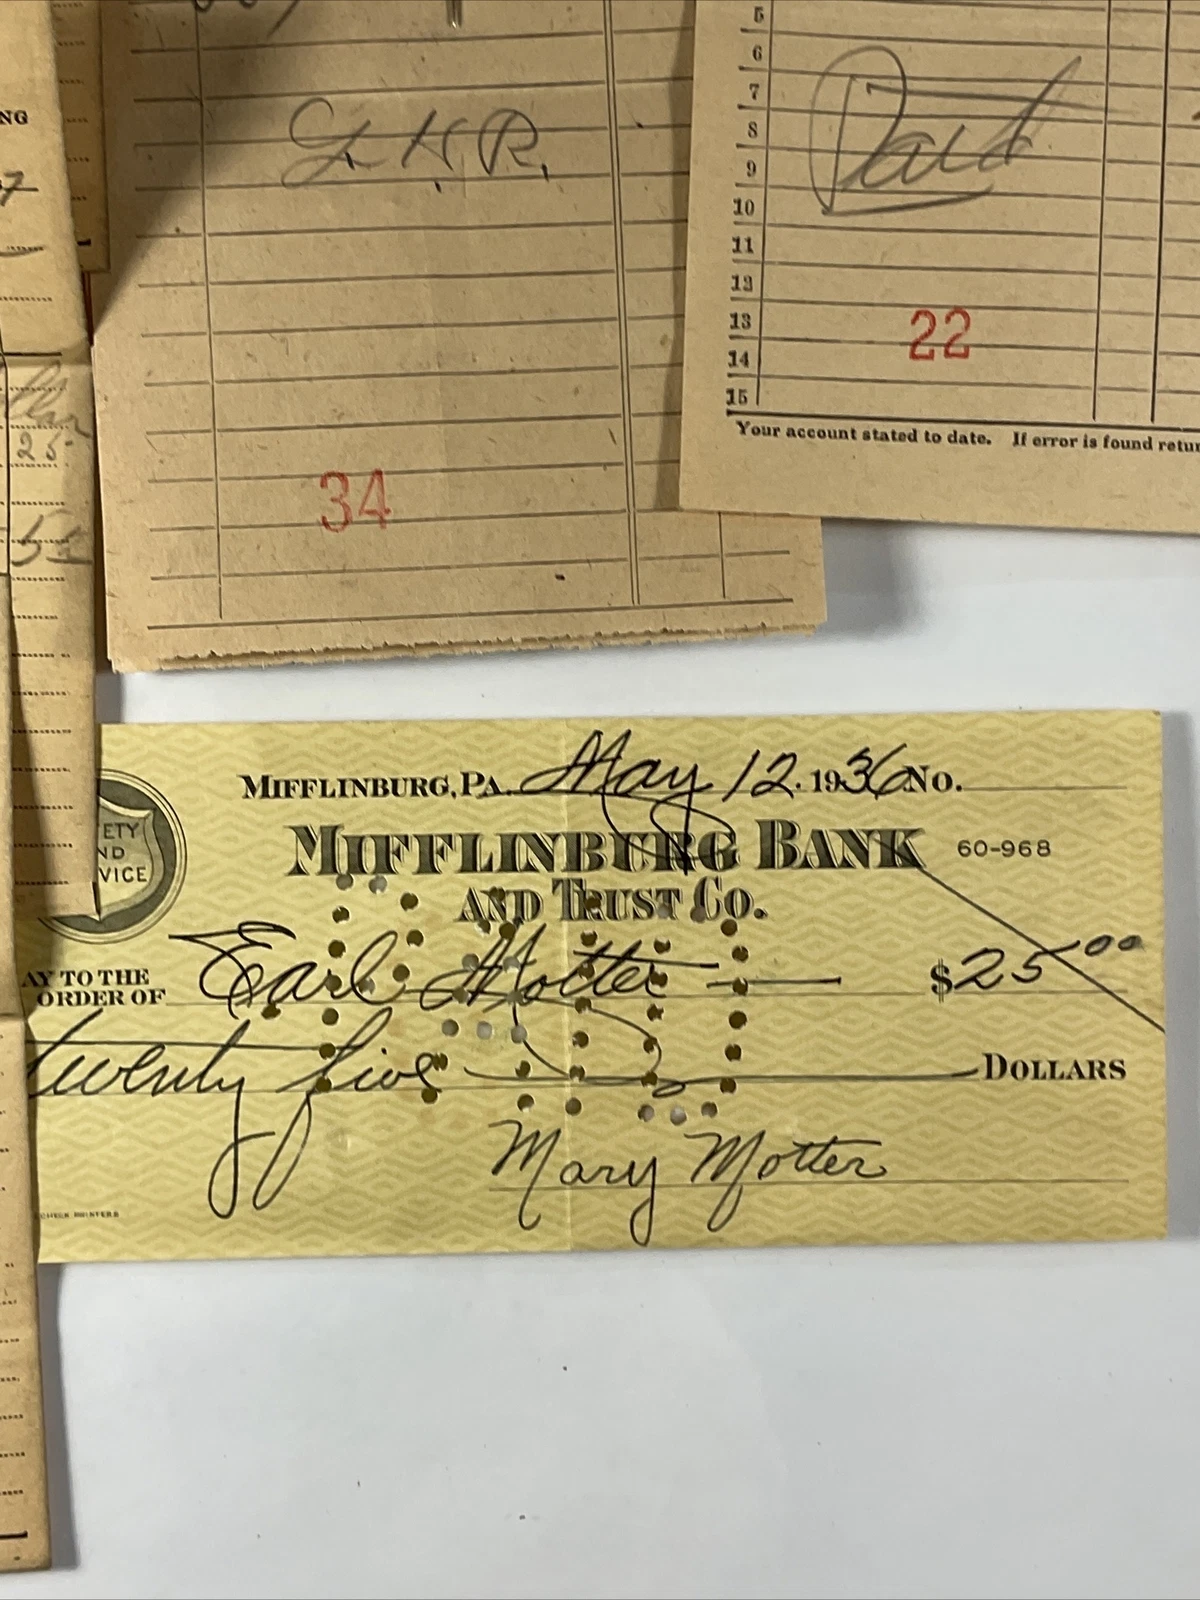 NG
7
25
5
L. H. R.
34
5
6
7
8
9
10
11
12
13
14
15
Paid
22
Your account stated to date. If error is found retur
MIFFLINBURG, PA. May 12. 1936 No.
MIFFLINBURG BANK
AND TRUST CO.
60-968
ETY
ND
VICE
AY TO THE
ORDER OF Earl Motter $25 00
twenty five DOLLARS
Mary Motter
CHECK PRINTERS